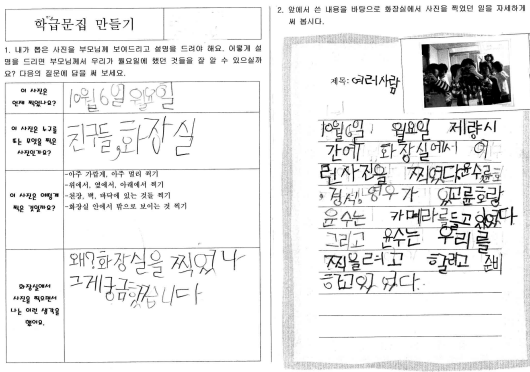 학급문집 만들기
1. 내가 뽑은 사진을 부모님께 보여드리고 설명을 드려야 해요. 어떻게 설
명을 드리면 부모님께서 우리가 월요일에 했던 것들을 잘 알 수 있으실까
요? 다음의 질문에 답을 써 보세요.
이 사진은
언제 찍었나요?
10월 6일 월요일
이 사진은 누구를
또는 무엇을 찍은
사진인가요?
친구들, 화장실
이 사진은 어떻게
찍은 것인가요?
-아주 가깝게, 아주 멀리 찍기
-위에서, 옆에서, 아래에서 찍기
-천장, 벽, 바닥에 있는 것들 찍기
-화장실 안에서 밖으로 보이는 것 찍기
화장실에서
사진을 찍으면서
나는 이런 생각을
했어요.
왜? 화장실을 찍었나
그게 궁금했습니다
2. 앞에서 쓴 내용을 바탕으로 화장실에서 사진을 찍었던 일을 자세하게
써 봅시다.
제목: 여러사람
10월 6일 월요일 제량시
간에 화장실에서 이
런사진을 찍었다. 윤수랑
영우가 있고 윤호랑
윤수는 카메라를 들고 있었다
그리고 윤수는 우리를
찍을려고 할려고 준비
하고 있었다.